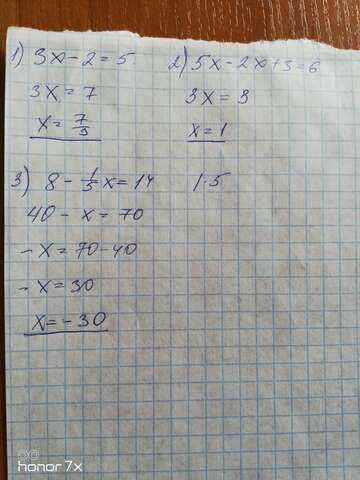 1) 3x - 2 = 5
3x = 7
x = 7/3
2) 5x - 2x + 3 = 6
3x = 3
x = 1
3) 8 - 1/5 x = 14 | · 5
40 - x = 70
- x = 70 - 40
- x = 30
x = - 30
honor 7x